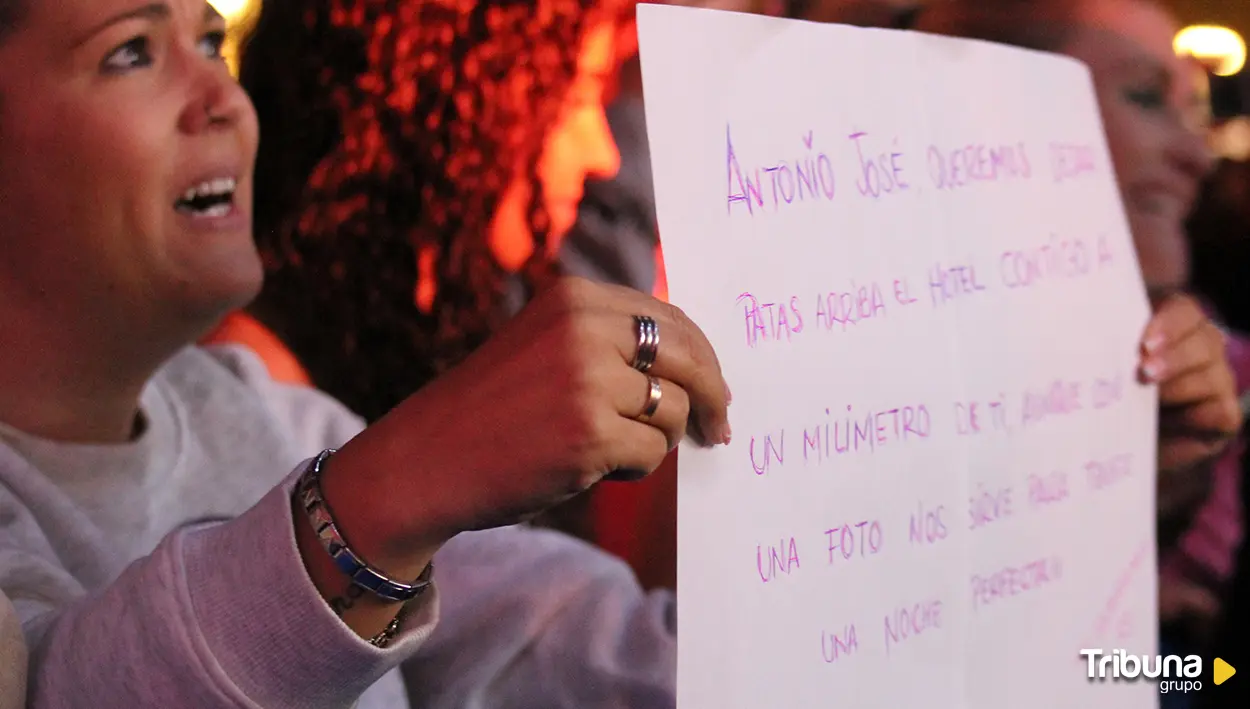 ANTONIO JOSÉ, QUEREMOS DEJAR
PATAS ARRIBA EL HOTEL CONTIGO A
UN MILÍMETRO DE TI, AUNQUE CON
UNA FOTO NOS SIRVE PARA TENER
UNA NOCHE PERFECTA!!
Tribuna
grupo